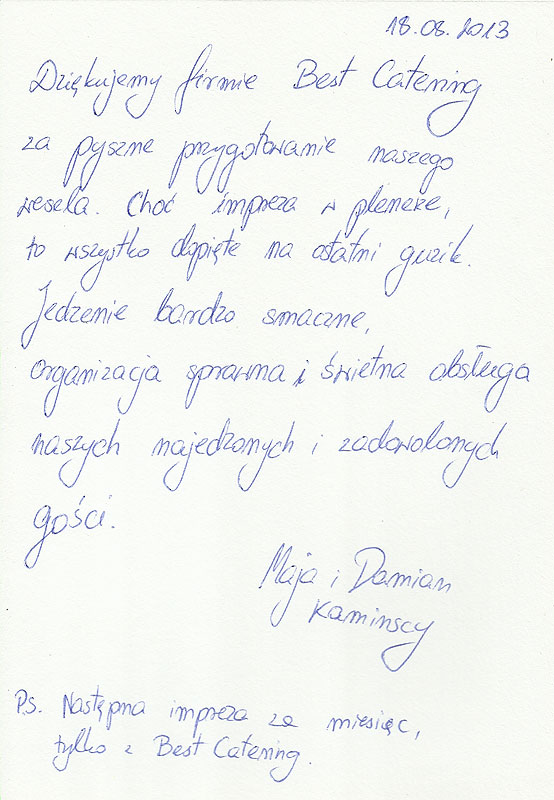 18.08.2013
Dziękujemy firmie Best Catering
za pyszne przygotowanie naszego
wesela. Choć impreza w plenerze,
to wszystko dopięte na ostatni guzik.
Jedzenie bardzo smaczne,
organizacja sprawna i świetna obsługa
naszych najedzonych i zadowolonych
gości.
Maja i Damian
Kaminscy
P.S. Następna impreza za miesiąc,
tylko z Best Catering.